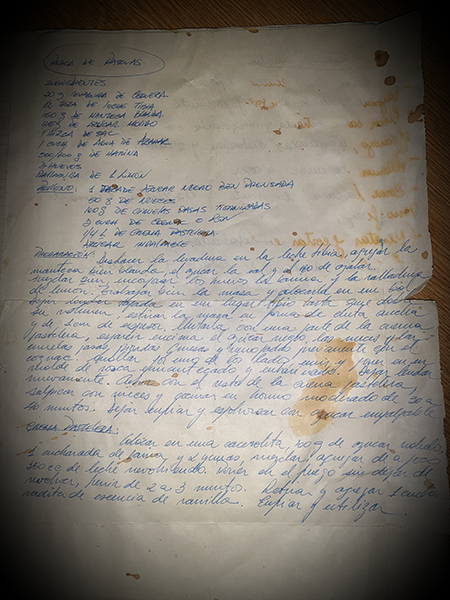 ROSCA DE PASCUAS
INGREDIENTES
20 g LEVADURA DE CERVEZA
1/2 TAZA DE LECHE TIBIA
150 g DE MANTECA BLANDA
100 g DE AZUCAR MOLIDO
1 PIZCA DE SAL
1 CUCH DE AGUA DE AZAHAR
500/600 g DE HARINA
3 HUEVOS
RALLADURA DE 1 LIMÓN
RELLENO: 1 TAZA DE AZUCAR NEGRO BIEN PRENSADA
50 g DE NUECES
100 g DE CIRUELAS PASAS TIERNIZADAS
3 CUCH DE COÑAC O RON
1/4 L DE CREMA PASTELERA
AZUCAR IMPALPABLE
PREPARACIÓN: Deshacer la levadura en la leche tibia, agregar la
manteca bien blanda, el azucar la sal y el agua de azahar.
Mezclar bien, incorporar los huevos, la harina y la ralladura
de limon. Trabajar bien la masa y colocarla en un bol
Dejar leudar tapada en un lugar tibio hasta que doble
su volumen. estirar la masa en forma de cinta ancha
y de 2 cm de espesor, Untarla con una parte de la crema
pastelera, esparcir encima el azucar negro, las nueces y las
ciruelas pasas, picadas gruesas y remojadas previamente con el
cognac. Arrollar por uno de los lados, unir y poner en un
molde de rosca enmantecado y enharinado. Dejar leudar
nuevamente. Cubrir con el resto de la crema pastelera,
salpicar con nueces y cocinar en horno moderado de 30 a
40 minutos. Dejar enfriar y espolvorear con azucar impalpable
CREMA PASTELERA:
Colocar en una cacerolita, 100 g de azucar molido,
1 cucharada de harina y 2 yemas, mezclar, agregar de a poco
250 cc de leche revolviendo. Llevar en el fuego sin dejar de
revolver, hervir de 2 a 3 minutos. Retirar y agregar 1 cucha-
radita de esencia de vainilla. Enfriar y utilizar.